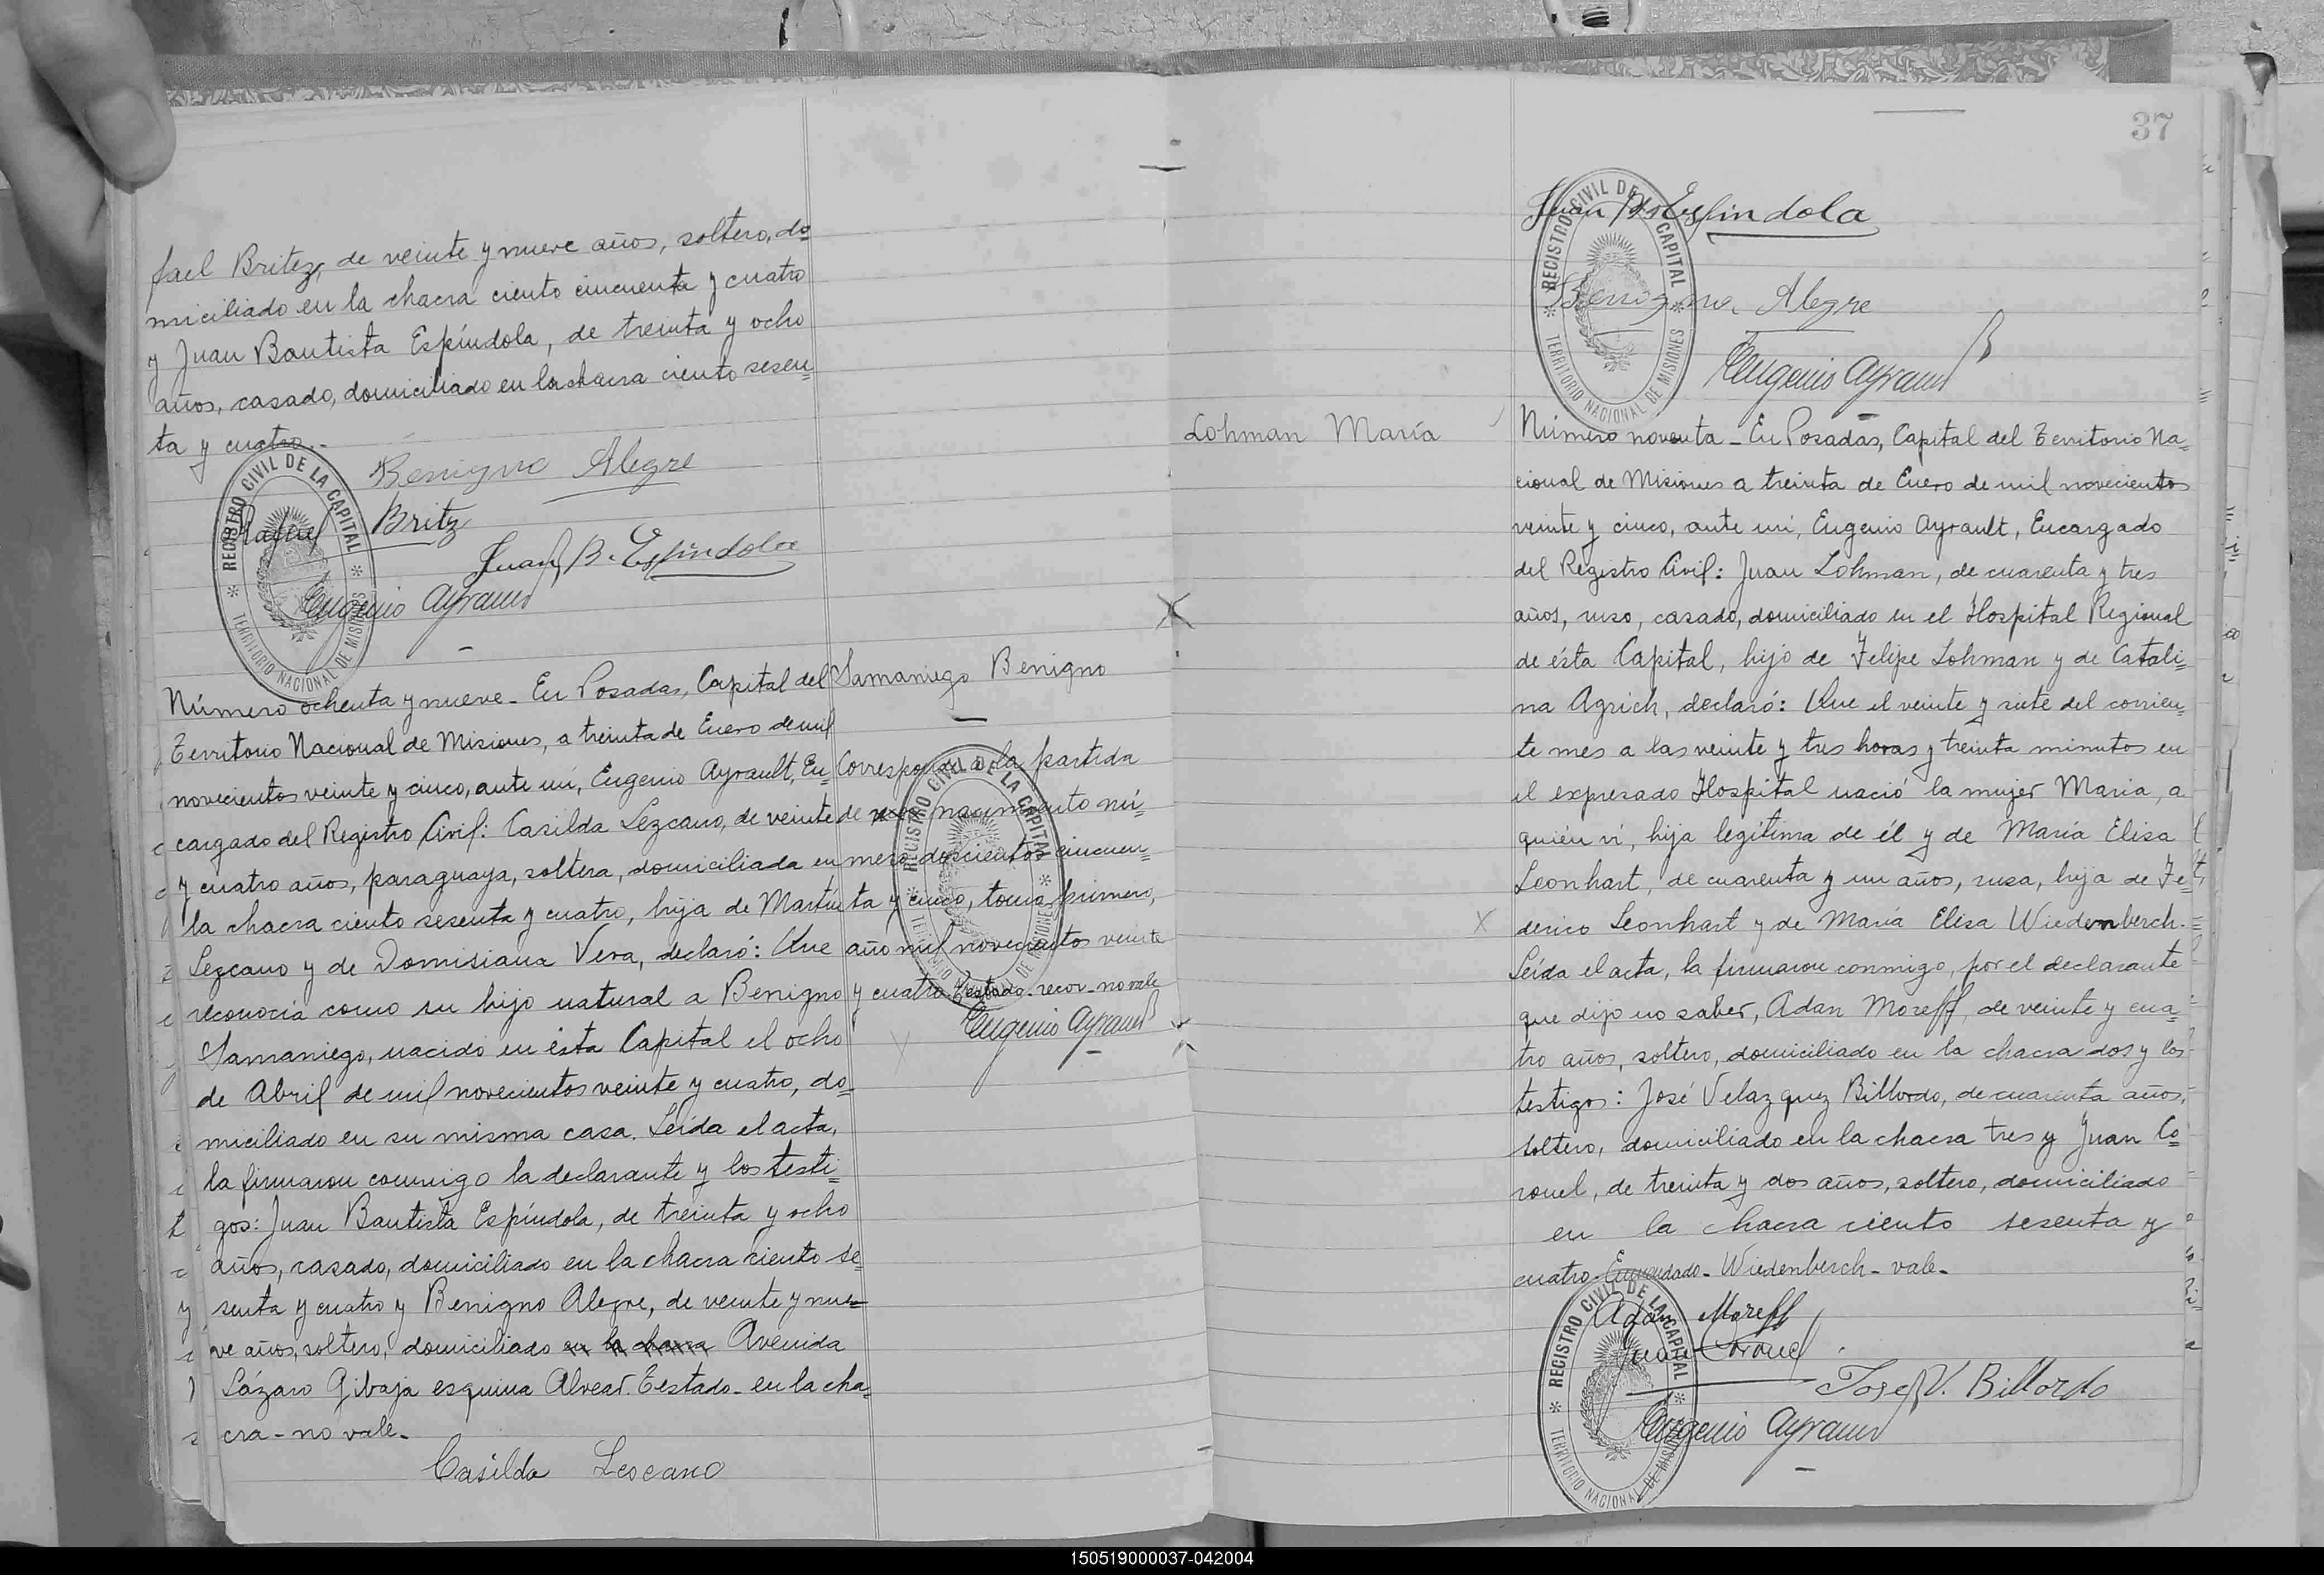 fael Britez, de veinte y nueve años, soltero, do=
miciliado en la chacra ciento cincuenta y cuatro
y Juan Bautista Espíndola, de treinta y ocho
años, casado, domiciliado en la chacra ciento sesen=
ta y cuatro.-
Benigno Alegre
Rafael Britz
Juan B. Espindola
Eugenio Ayrault
REGISTRO CIVIL DE LA CAPITAL
TERRITORIO NACIONAL DE MISIONES
Número ochenta y nueve - En Posadas, Capital del
Territorio Nacional de Misiones, a treinta de Enero de mil
novecientos veinte y cinco, ante mí, Eugenio Ayrault, En=
cargado del Registro Civil: Casilda Lezcano, de veinte
y cuatro años, paraguaya, soltera, domiciliada en
la chacra ciento sesenta y cuatro, hija de Martín
Lezcano y de Domisiana Vera, declaró: Que
reconocía como su hijo natural a Benigno
Samaniego, nacido en ésta Capital el ocho
de Abril de mil novecientos veinte y cuatro, do=
miciliado en su misma casa. Leída el acta,
la firmaron conmigo la declarante y los testi=
gos: Juan Bautista Espíndola, de treinta y ocho
años, casado, domiciliado en la chacra ciento se=
senta y cuatro y Benigno Alegre, de veinte y nue=
ve años, soltero, domiciliado en la chacra Avenida
Lázaro Gibaja esquina Alvear. Testado - en la cha=
cra - no vale.
Casilda Lescano
Samaniego Benigno
Corresponde a la partida
de nacimiento nú=
mero doscientos cincuen=
ta y cinco, tomo primero,
año mil novecientos veinte
y cuatro. Testado - recor - no vale
Eugenio Ayrault
REGISTRO CIVIL DE LA CAPITAL
TERRITORIO NACIONAL DE MISIONES
37
Juan B. Espindola
Benigno Alegre
Eugenio Ayrault
REGISTRO CIVIL DE LA CAPITAL
TERRITORIO NACIONAL DE MISIONES
Lohman María
Número noventa - En Posadas, Capital del Territorio Na=
cional de Misiones a treinta de Enero de mil novecientos
veinte y cinco, ante mí, Eugenio Ayrault, Encargado
del Registro Civil: Juan Lohman, de cuarenta y tres
años, ruso, casado, domiciliado en el Hospital Regional
de ésta Capital, hijo de Felipe Lohman y de Catali=
na Agrich, declaró: Que el veinte y siete del corrien=
te mes a las veinte y tres horas y treinta minutos en
el expresado Hospital nació la mujer Maria, a
quién ví, hija legítima de él y de María Elisa
Leonhart, de cuarenta y un años, rusa, hija de Fe=
derico Leonhart y de María Elisa Wiedenberch.
Leída el acta, la firmaron conmigo, por el declarante
que dijo no saber, Adan Moreff, de veinte y cua=
tro años, soltero, domiciliado en la chacra dos y los
testigos: José Velazquez Billordo, de cuarenta años,
soltero, domiciliado en la chacra tres y Juan Co=
ronel, de treinta y dos años, soltero, domiciliado
en la chacra ciento sesenta y
cuatro. Enmendado - Wiedenberch - vale -
Adan Moreff
Juan Coronel
Jose V. Billordo
Eugenio Ayrault
REGISTRO CIVIL DE LA CAPITAL
TERRITORIO NACIONAL DE MISIONES
150519000037-042004